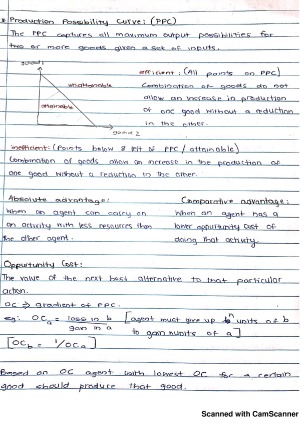 * Production Possibility Curve: (PPC)
The PPC captures all maximum output possibilities for
two or more goods given a set of inputs.
good 1
unattainable
attainable
good 2
efficient: (All points on PPC)
Combination of goods do not
allow an increase in production
of one good without a reduction
in the other.
inefficient: (Points below & left of PPC / attainable)
Combination of goods allow an increase in the production of
one good without a reduction in the other.
Absolute advantage:
when an agent can carry on
an activity with less resources than
the other agent.
Comparative advantage:
when an agent has a
lower opportunity cost of
doing that activity.
Opportunity Cost:
The value of the next best alternative to that particular
action.
OC → gradient of PPC.
eg: OCa = loss in b / gain in a [agent must give up n units of b
to gain n units of a]
[OCb = 1/OCa]
Based on OC agent with lowest OC for a certain
good should produce that good.
Scanned with CamScanner